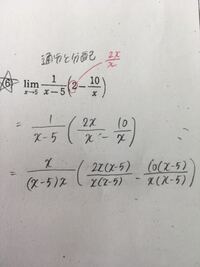 通分と分配 2x/x
(6) lim x→5 1/(x-5) (2 - 10/x)
= 1/(x-5) (2x/x - 10/x)
= x/((x-5)x) (2x(x-5)/(x(x-5)) - 10(x-5)/(x(x-5)))